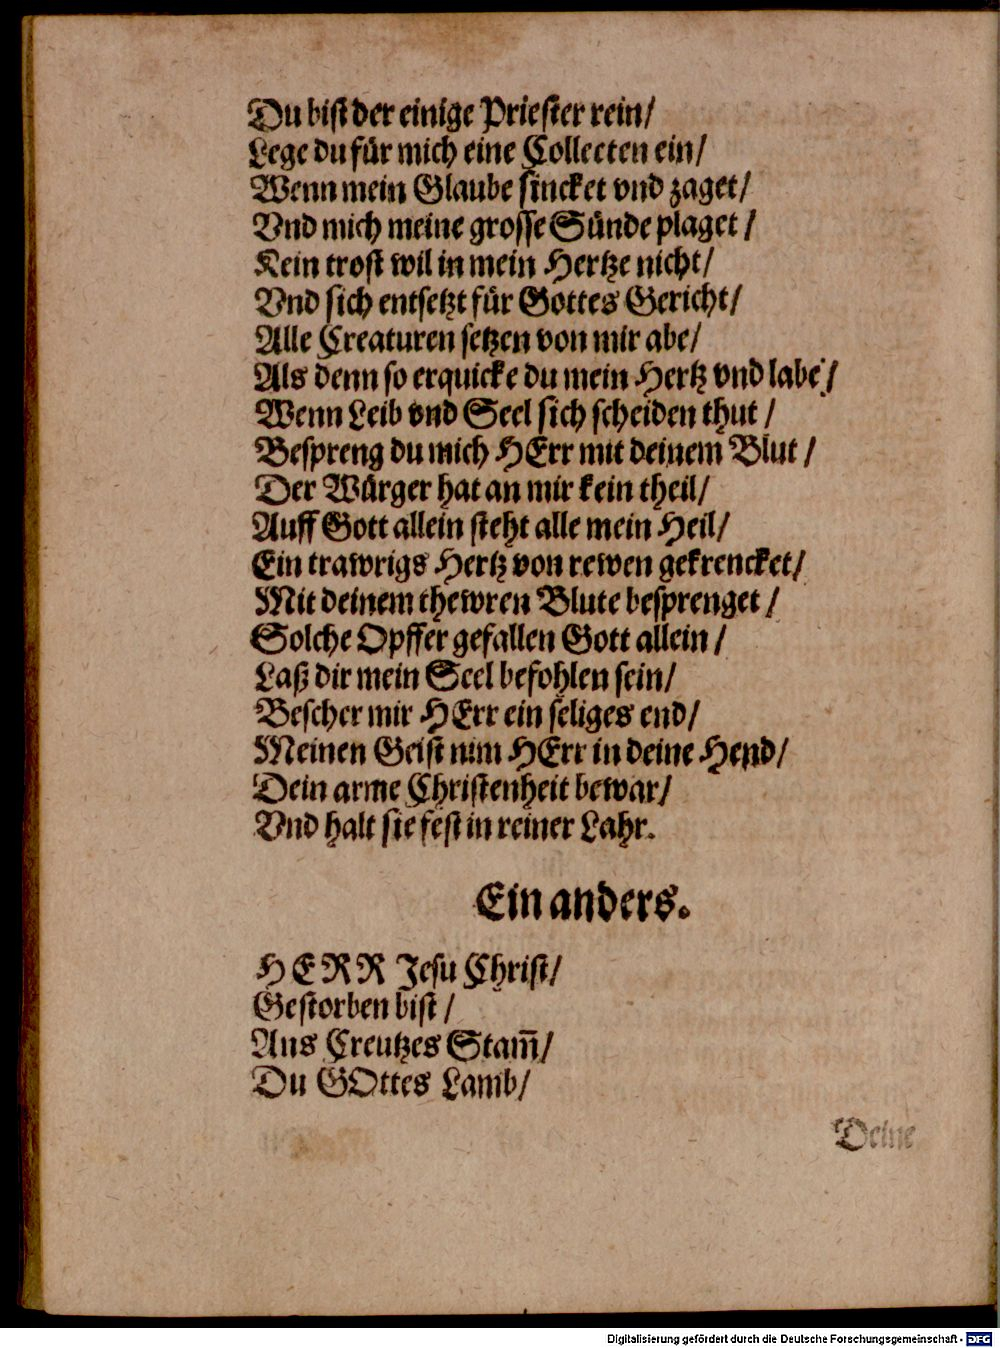 Du bist der einige Priester rein/
Lege du für mich eine Collecten ein/
Wenn mein Glaube sincket vnd zaget/
Vnd mich meine grosse Sünde plaget/
Kein trost wil in mein Hertze nicht/
Vnd sich entsetzt für Gottes Gericht/
Alle Creaturen setzen von mir abe/
Als denn so erquicke du mein Hertz vnd labe/
Wenn Leib vnd Seel sich scheiden thut/
Bespreng du mich HErr mit deinem Blut/
Der Würger hat an mir kein theil/
Auff Gott allein steht alle mein Heil/
Ein trawrigs Hertz von rewen gekrencket/
Mit deinem thewren Blute besprenget/
Solche Opffer gefallen Gott allein/
Laß dir mein Seel befohlen sein/
Bescher mir HErr ein seliges end/
Meinen Geist nim HErr in deine Hend/
Dein arme Christenheit bewar/
Vnd halt sie fest in reiner Lahr.
Ein anders.
HERR Jesu Christ/
Gestorben bist/
Ans Creutzes Stam̃/
Du GOttes Lamb/
Deine
Digitalisierung gefördert durch die Deutsche Forschungsgemeinschaft - DFG